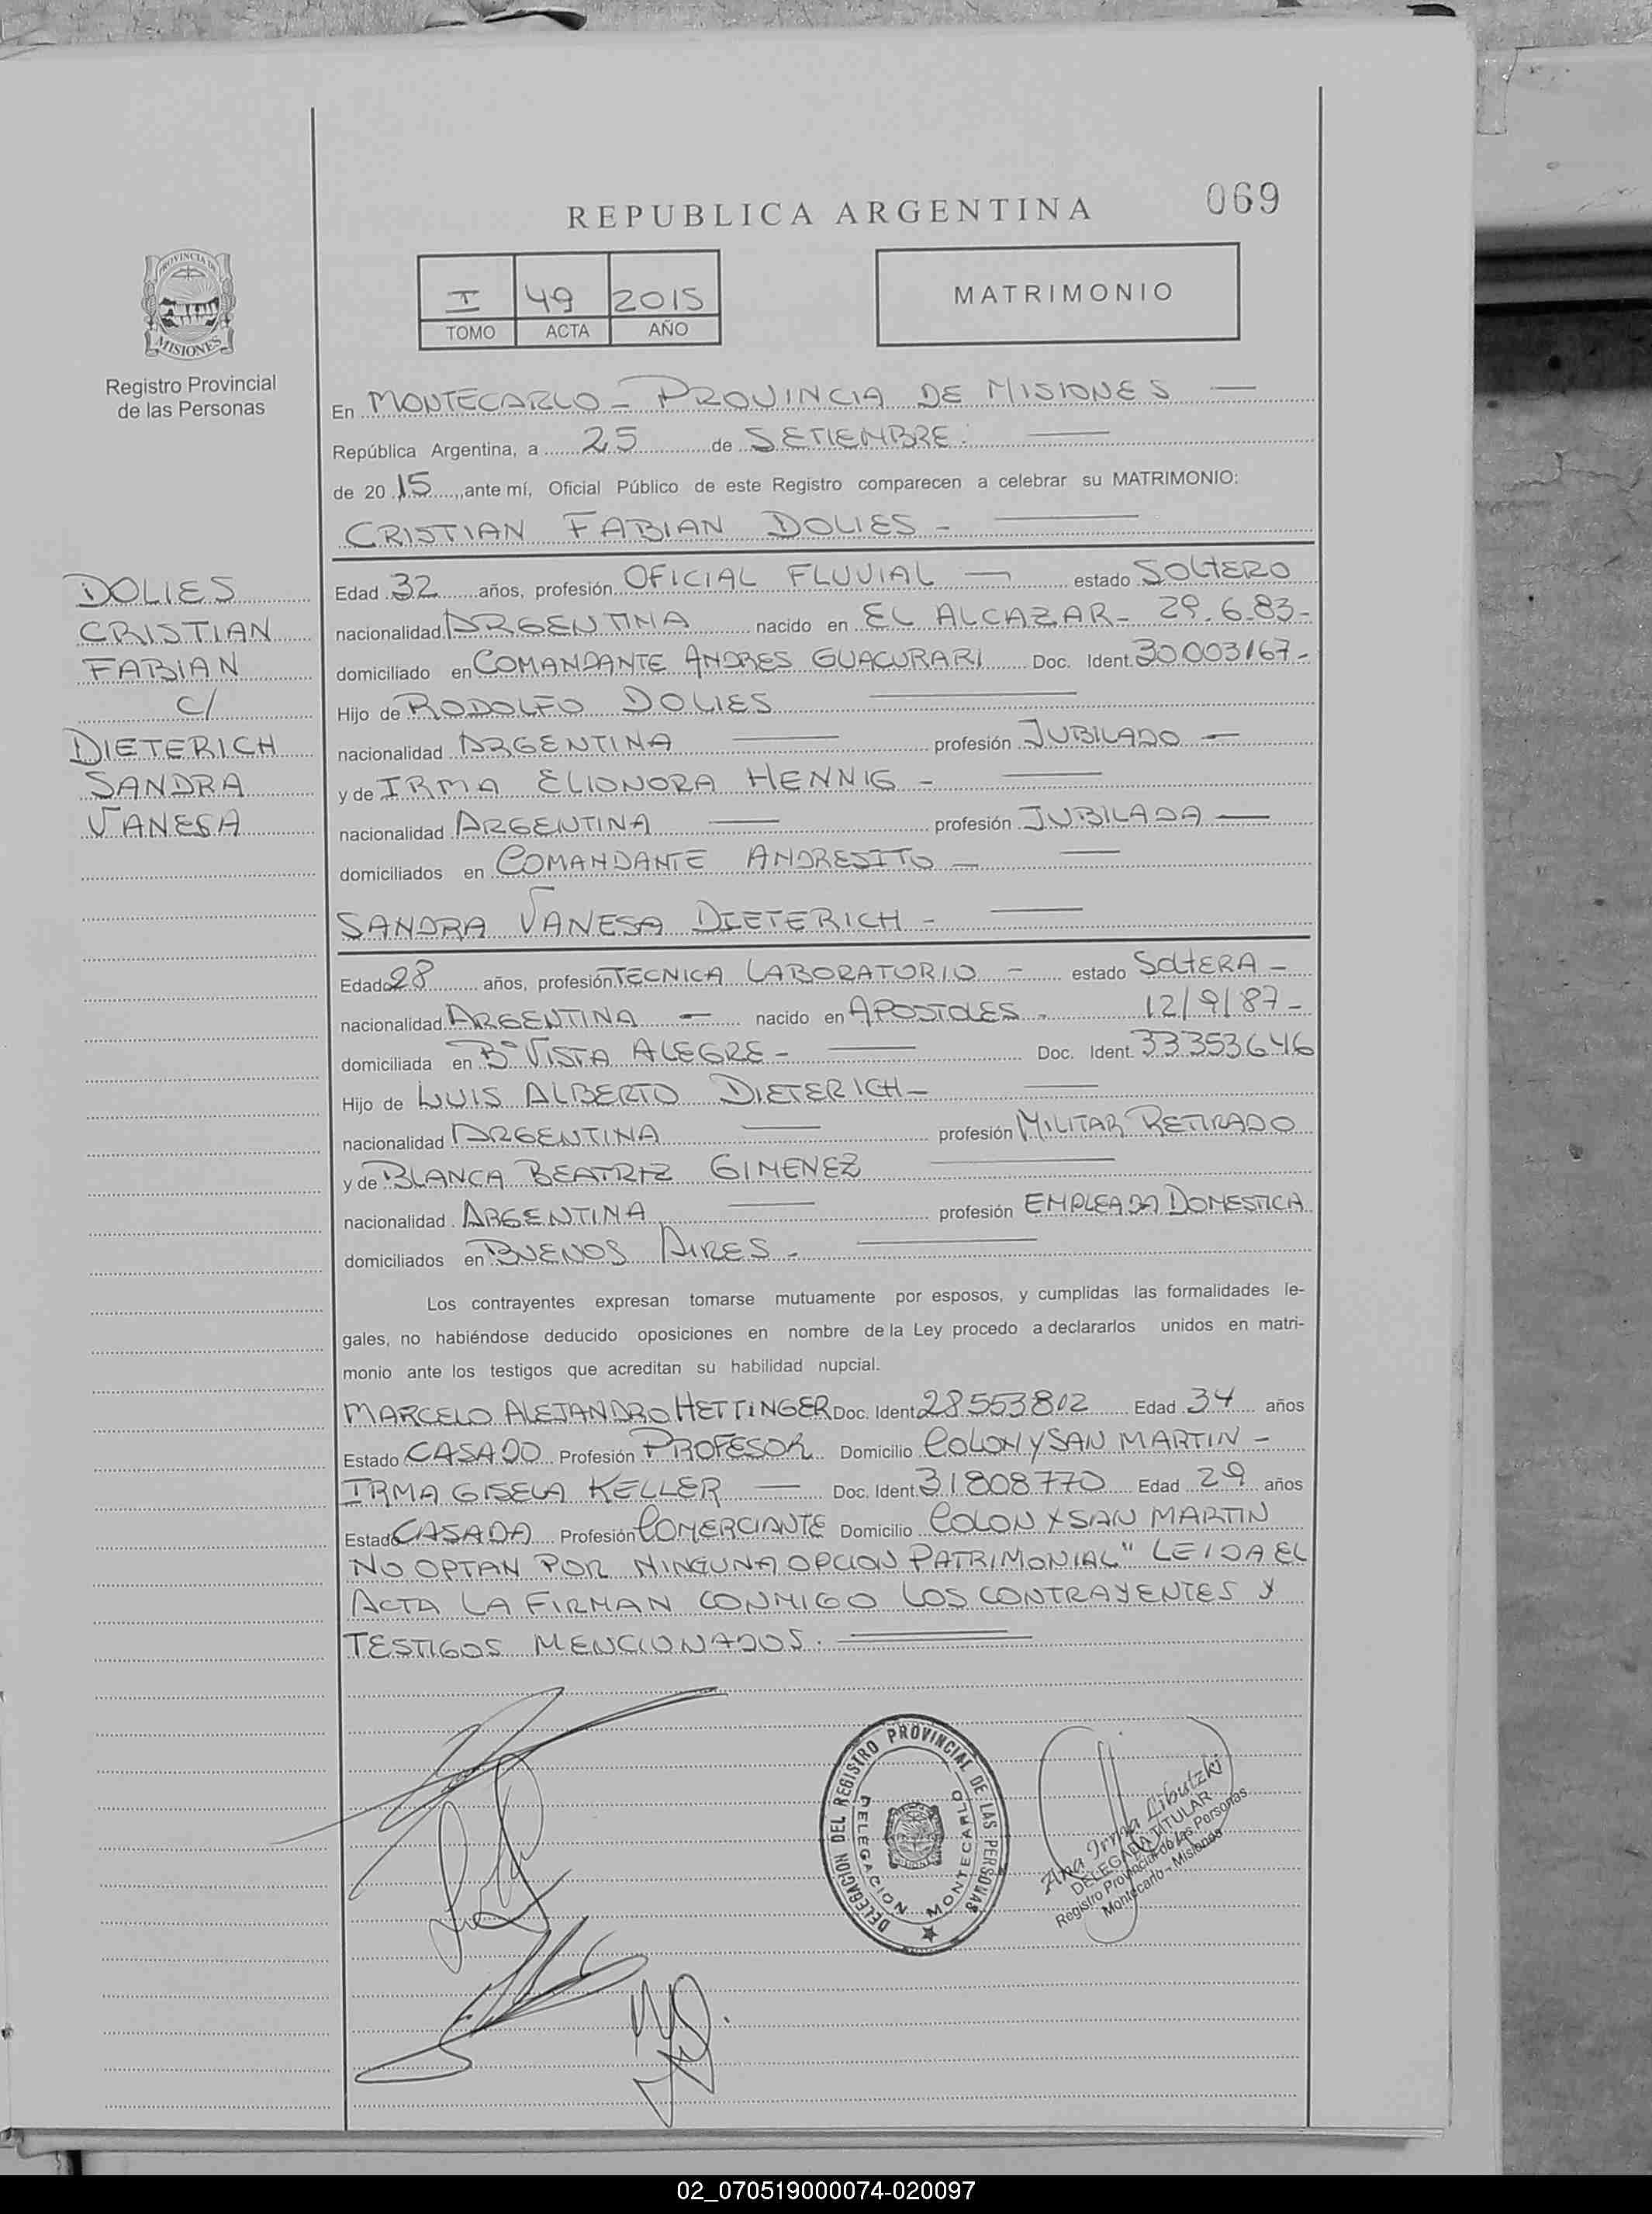 REPUBLICA ARGENTINA
069
PROVINCIA DE
MISIONES
Registro Provincial
de las Personas
I 49 2015
TOMO ACTA AÑO
MATRIMONIO
En MONTECARLO - PROVINCIA DE MISIONES
República Argentina, a 25 de SETIEMBRE.
de 2015, ante mí, Oficial Público de este Registro comparecen a celebrar su MATRIMONIO:
CRISTIAN FABIAN DOLIES -
DOLIES
CRISTIAN
FABIAN
C/
DIETERICH
SANDRA
VANESA
Edad 32 años, profesión OFICIAL FLUVIAL — estado SOLTERO
nacionalidad ARGENTINA nacido en EL ALCAZAR - 29.6.83-
domiciliado en COMANDANTE ANDRES GUACURARI Doc. Ident. 30003167-
Hijo de RODOLFO DOLIES
nacionalidad ARGENTINA — profesión JUBILADO -
y de IRMA ELIONORA HENNIG -
nacionalidad ARGENTINA — profesión JUBILADA —
domiciliados en COMANDANTE ANDRESITO -
SANDRA VANESA DIETERICH -
Edad 28 años, profesión TECNICA LABORATORIO - estado SOLTERA -
nacionalidad ARGENTINA - nacido en APOSTOLES - 12/9/87-
domiciliada en B° VISTA ALEGRE - Doc. Ident. 33353646
Hijo de LUIS ALBERTO DIETERICH -
nacionalidad ARGENTINA — profesión MILITAR RETIRADO
y de BLANCA BEATRIZ GIMENEZ
nacionalidad ARGENTINA — profesión EMPLEADA DOMESTICA
domiciliados en BUENOS AIRES -
Los contrayentes expresan tomarse mutuamente por esposos, y cumplidas las formalidades le-
gales, no habiéndose deducido oposiciones en nombre de la Ley procedo a declararlos unidos en matri-
monio ante los testigos que acreditan su habilidad nupcial.
MARCELO ALEJANDRO HETTINGER Doc. Ident. 28553802 Edad 34 años
Estado CASADO Profesión PROFESOR Domicilio COLON Y SAN MARTIN -
IRMA GISELA KELLER — Doc. Ident. 31808770 Edad 29 años
Estado CASADA Profesión COMERCIANTE Domicilio COLON Y SAN MARTIN
NO OPTAN POR NINGUNA OPCION PATRIMONIAL" LEIDA EL
ACTA LA FIRMAN CONMIGO LOS CONTRAYENTES Y
TESTIGOS MENCIONADOS.
DELEGACION DEL REGISTRO PROVINCIAL DE LAS PERSONAS
DELEGACION MONTECARLO
Ana Irma Libutzki
DELEGADA TITULAR
Registro Provincial de las Personas
Montecarlo - Misiones
02_070519000074-020097